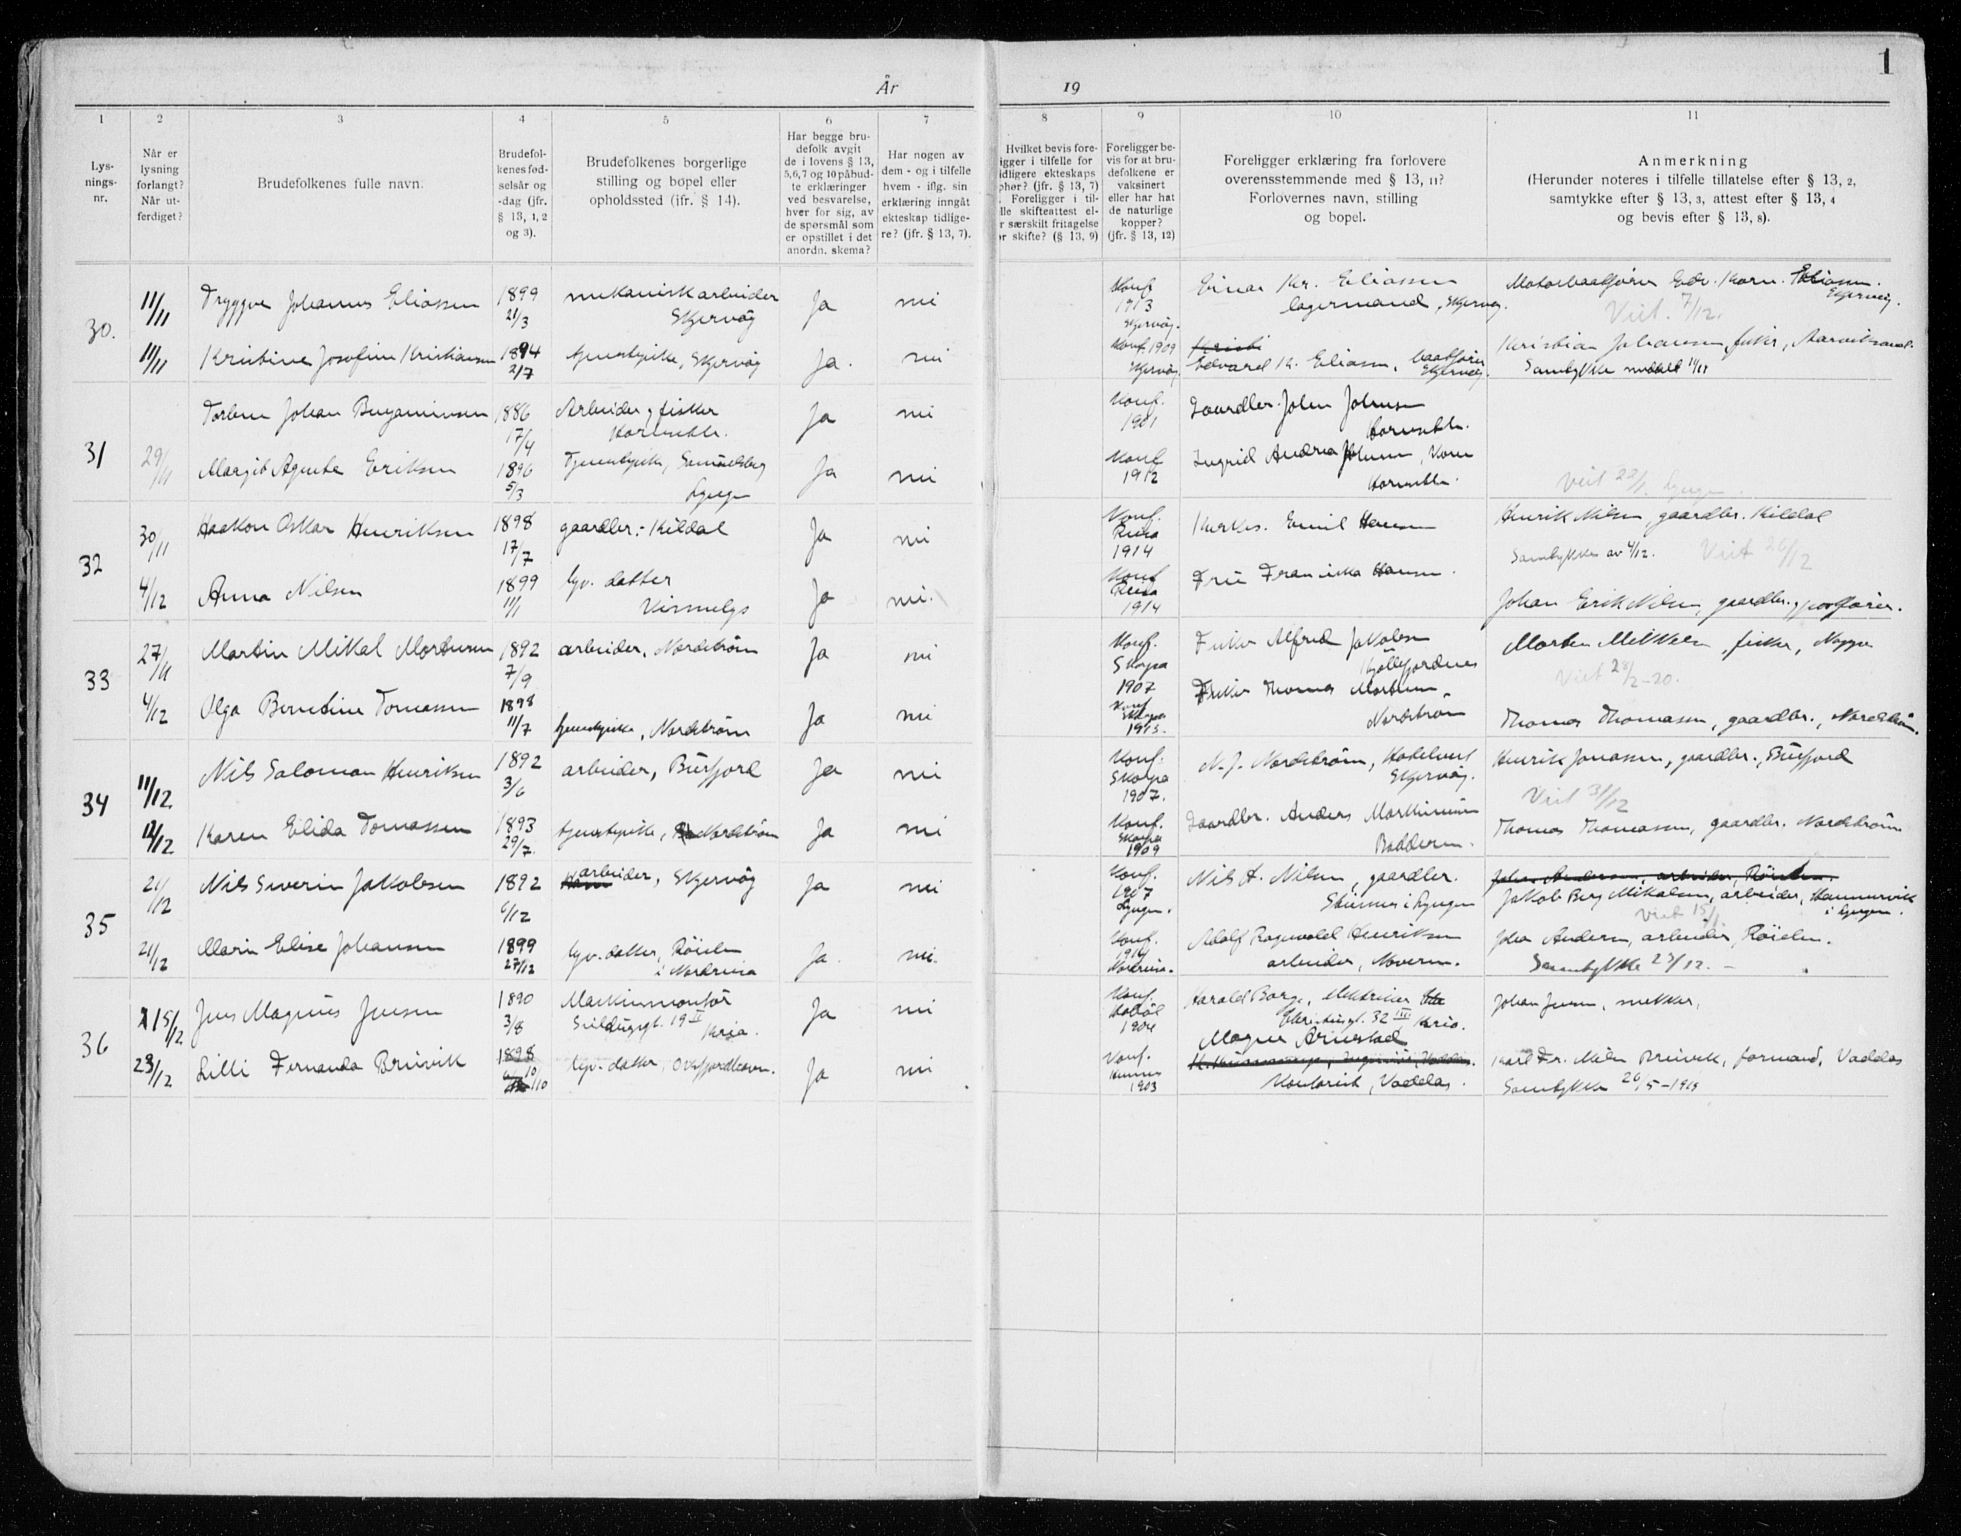 1
År
19
1
2
3
4
5
6
7
8
9
10
11
Lys-
nings-
nr.
Når er
lysning
forlangt?
Når ut-
ferdiget?
Brudefolkenes fulle navn.
Brudefol-
kenes fød-
selsår og
-dag (jfr.
§ 13, 1, 2
og 3).
Brudefolkenes borgerlige
stilling og bopel eller
opholdssted (ifr. § 14).
Har begge bru-
defolk avgit
de i lovens § 13,
5,6,7 og 10 påbud-
te erklæringer
ved besvarelse,
hver for sig, av
de spørsmål som
er opstillet i det
anordn. skema?
Har nogen av
dem - og i tilfelle
hvem - iflg. sin
erklæring inngåt
ekteskap tidlige-
re? (jfr. § 13, 7).
Hvilket bevis fore-
igger i tilfelle for
idligere ekteskaps
pher? (jfr. § 13, 7)
. Foreligger i til-
lle skifteattest el-
r særskilt fritagelse
or skifte? (§ 13, 9)
Foreligger be-
vis for at bru-
defolkene er
vaksinert
eller har hat
de naturlige
kopper?
(jfr. § 13, 12)
Foreligger erklæring fra forlovere
overensstemmende med § 13, 11?
Forlovernes navn, stilling
og bopel.
Anmerkning
(Herunder noteres i tilfelle tillatelse efter § 13, 2,
samtykke efter § 13, 3, attest efter § 13, 4
og bevis efter § 13, 8).
30.
11/11
Tryggve Johannes Eliassen
1899
21/3
mekanisk arbeider
Skjervøy
Ja
nei
Konf.
1913
Skjervøy.
Einar Kr. Eliassen
lagermand, Skjervøy.
Motorbaatfører Edv. Korn. Eliassen.
Skjervøy.
Viet. 7/12.
11/11
Kristine Josefine Kristiansen
1894
2/7
tjenestepike, Skjervøy
Ja.
nei
Konf. 1909
Skjervøy.
Kristi
Edvard K. Eliasn, baatfører
Skjervøy.
Kristian Johansen, fisker,
Samtykke meddelt 11/11
31
29/11
Torleiv Johan Benjaminsen
1886
17/4
Arbeider, fisker
Ja
nei
Konf.
1901
Gaardbr. John Johnsen
Margit Agnete Eriksen
1896
5/3
Tjenestepike, Samuelsberg
Lyngen
Ja
nei
Konf.
1912
Ingrid Andrea Johnsen, Kone
Viet 23/1. Lyngen
32
30/11
Haakon Oskar Henriksen
1898
17/7
gaardbr.: Kildal
Ja
nei
Konf.
Reisa
1914
Kirkes. Emil Hansen
Henrik Nilsen, gaardbr. Kildal
Samtykke av 4/12. Viet 26/12
4/12
Anna Nilsen
1899
11/1
hjv. datter
Ja
nei.
Konf.
Reisa
1914
Frue Franciska Hansen.
Johan Erik Nilsen, gaardbr. postfører.
33
27/11
Martin Mikal Mortensen
1892
7/9
arbeider, Nordstrøm
Ja
nei
Konf.
Skorpa
1907
Fisker Alfred Jakobsen
Kjøllefjordnes
Morten Mikkelsen, fisker,
Viet 28/2-20.
4/12
Olga Berntine Tomassen
1898
11/7
tjenestepike, Nordstrøm
Ja
nei
Konf.
Skorpa
1913.
Fisker Thomas Mortensen,
Nordstrøm
Thomas Thomassen, gaardbr., Nordstrøm.
34
11/12
Nils Salomon Henriksen
1892
3/6
arbeider, Burfjord
Ja
nei
Konf.
Skorpa
1907.
N. J. Nordstrøm, Hotelvert
Skjervøy.
Henrik Jonassen, gaardbr., Burfjord
Viet 31/12
12/12
Karen Elida Tomassen
1893
29/7.
tjenestepike, Nordstrøm
Ja
nei
Konf.
Skorpa
1909
Gaardbr. Anders Martinsen
Badderen.
Thomas Thomassen, gaardbr. Nordstrøm
35
21/12
Nils Severin Jakobsen
1892
6/12
arbeider, Skjervøy
Ja
nei
Konf.
1907
Lyngen.
Nils A. Nilsen, gaardbr.
i Lyngen
John Andersen, arbeider, Røielen.
Jakob Berg Mikalsen, arbeider, Hamnervik
i Lyngen.
Viet 15/1.
21/12
Marie Elise Johansen
1899
27/12
hjv. datter, Røielen
i Nordreisa
Ja.
nei.
Konf.
1914
Nordreisa.
Adolf Ragnvald Henriksen
arbeider,
John Andersen, arbeider, Røielen.
Samtykke 23/12. -
36
15/12
Jens Magnus Jensen
1890
3/8
Maskinmontør
19 II
Kria.
Ja
nei
Konf.
Hobøl
1904
Harald Borge, elektriker
32 III Kria.
Johan Jensen, snekker,
23/12
Lilli Fernanda Breivik
1898
hjv. datter,
Ja
nei
Konf.
1903
Magne Arnestad
Kontorist, Vaddas.
Karl Fr. Nilsen Breivik, formand, Vaddas
Samtykke 20/5-1919